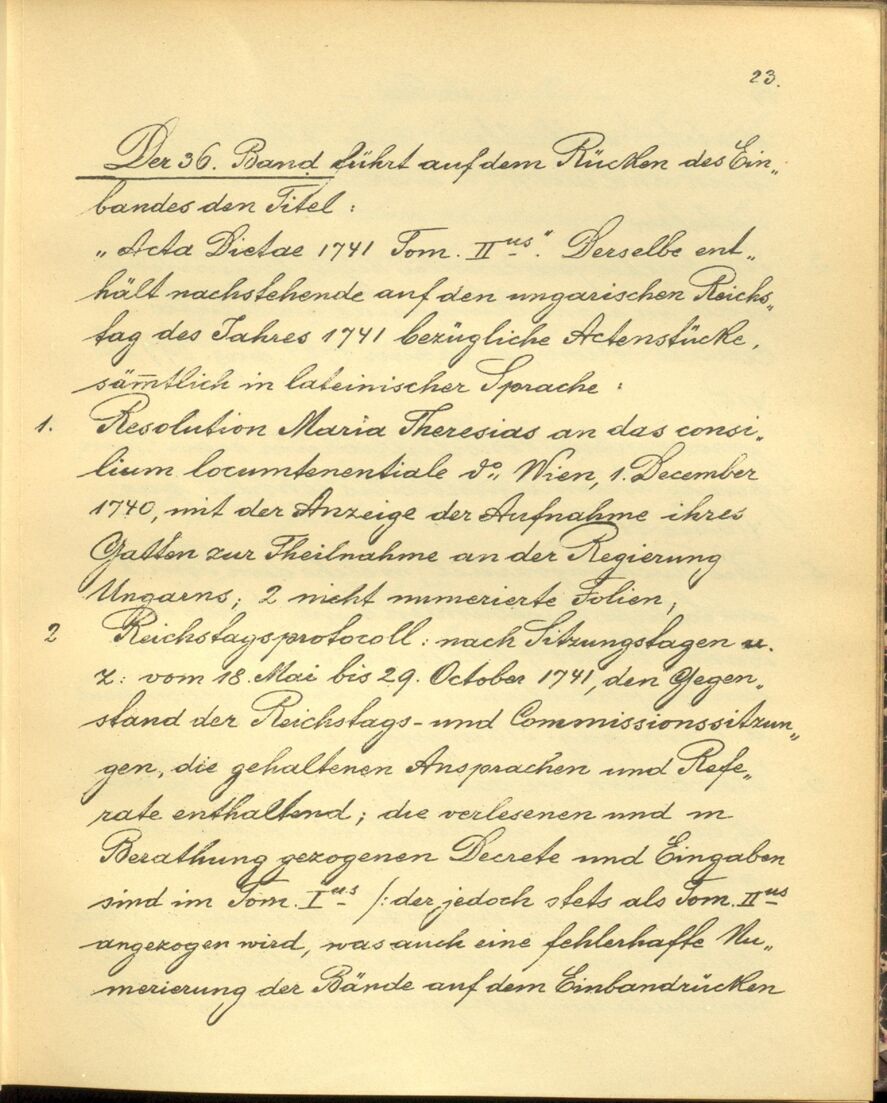 23.
Der 36. Band führt auf dem Rücken des Ein„
bandes den Titel :
„Acta Dietae 1741 Tom. IIus“. Derselbe ent„
hält nachstehende auf den ungarischen Reichs„
tag des Jahres 1741 bezügliche Actenstücke,
sämmtlich in lateinischer Sprache :
1. Resolution Maria Theresias an das consi„
lium locumtenentiale do. Wien, 1. December
1740, mit der Anzeige der Aufnahme ihres
Gatten zur Theilnahme an der Regierung
Ungarns; 2 nicht numerierte Folien,
2 Reichstagsprotocoll : nach Sitzungstagen u.
z: vom 18. Mai bis 29. October 1741, den Gegen„
stand der Reichstags- und Commissionssitzun„
gen, die gehaltenen Ansprachen und Refe„
rate enthaltend; die verlesenen und in
Berathung gezogenen Decrete und Eingaben
sind im Tom. Ius /: der jedoch stets als Tom. IIus
angezogen wird, was auch eine fehlerhafte Nu„
merierung der Bände auf dem Einbandrücken